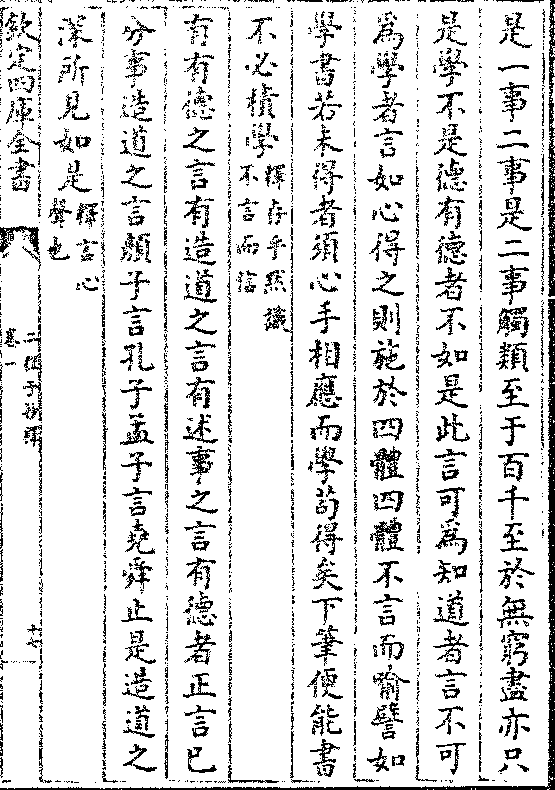 是一事二事是二事觸類至于百千至於無窮盡亦只
是學不是德有德者不如是此言可為知道者言不可
為學者言如心得之則施於四體四體不言而喻譬如
學書若未得者須心手相應而學苟得矣下筆便能書
不必積學釋存乎黙識
不言而信
有有德之言有造道之言有述事之言有德者止言己
分事造道之言顏子言孔子孟子言堯舜止是造道之
深所見如是釋言心
聲也
欽定四庫全書
卷一